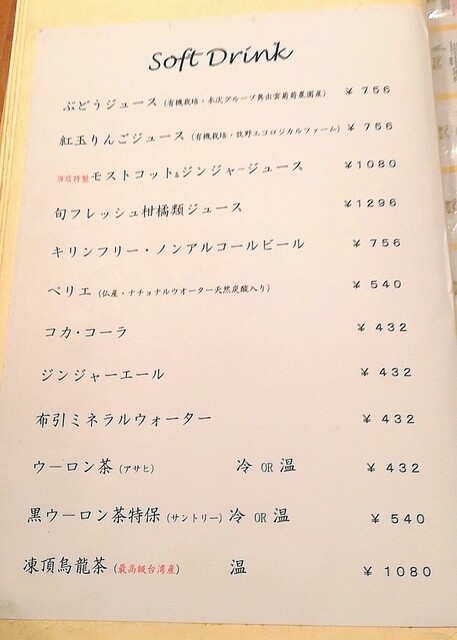 Soft Drink
ぶどうジュース (有機栽培・木次グループ奥出雲葡萄農園産) ¥ 756
紅玉りんごジュース (有機栽培・牧野エコロジカルファーム) ¥ 756
当店特製モストコット&ジンジャージュース ¥1080
旬フレッシュ柑橘類ジュース ¥1296
キリンフリー・ノンアルコールビール ¥ 756
ペリエ (仏産・ナチョナルウオーター天然炭酸入り) ¥ 540
コカ・コーラ ¥ 432
ジンジャーエール ¥ 432
布引ミネラルウォーター ¥ 432
ウーロン茶 (アサヒ) 冷 OR 温 ¥ 432
黒ウーロン茶特保 (サントリー) 冷 OR 温 ¥ 540
凍頂烏龍茶 (最高級台湾産) 温 ¥ 1080